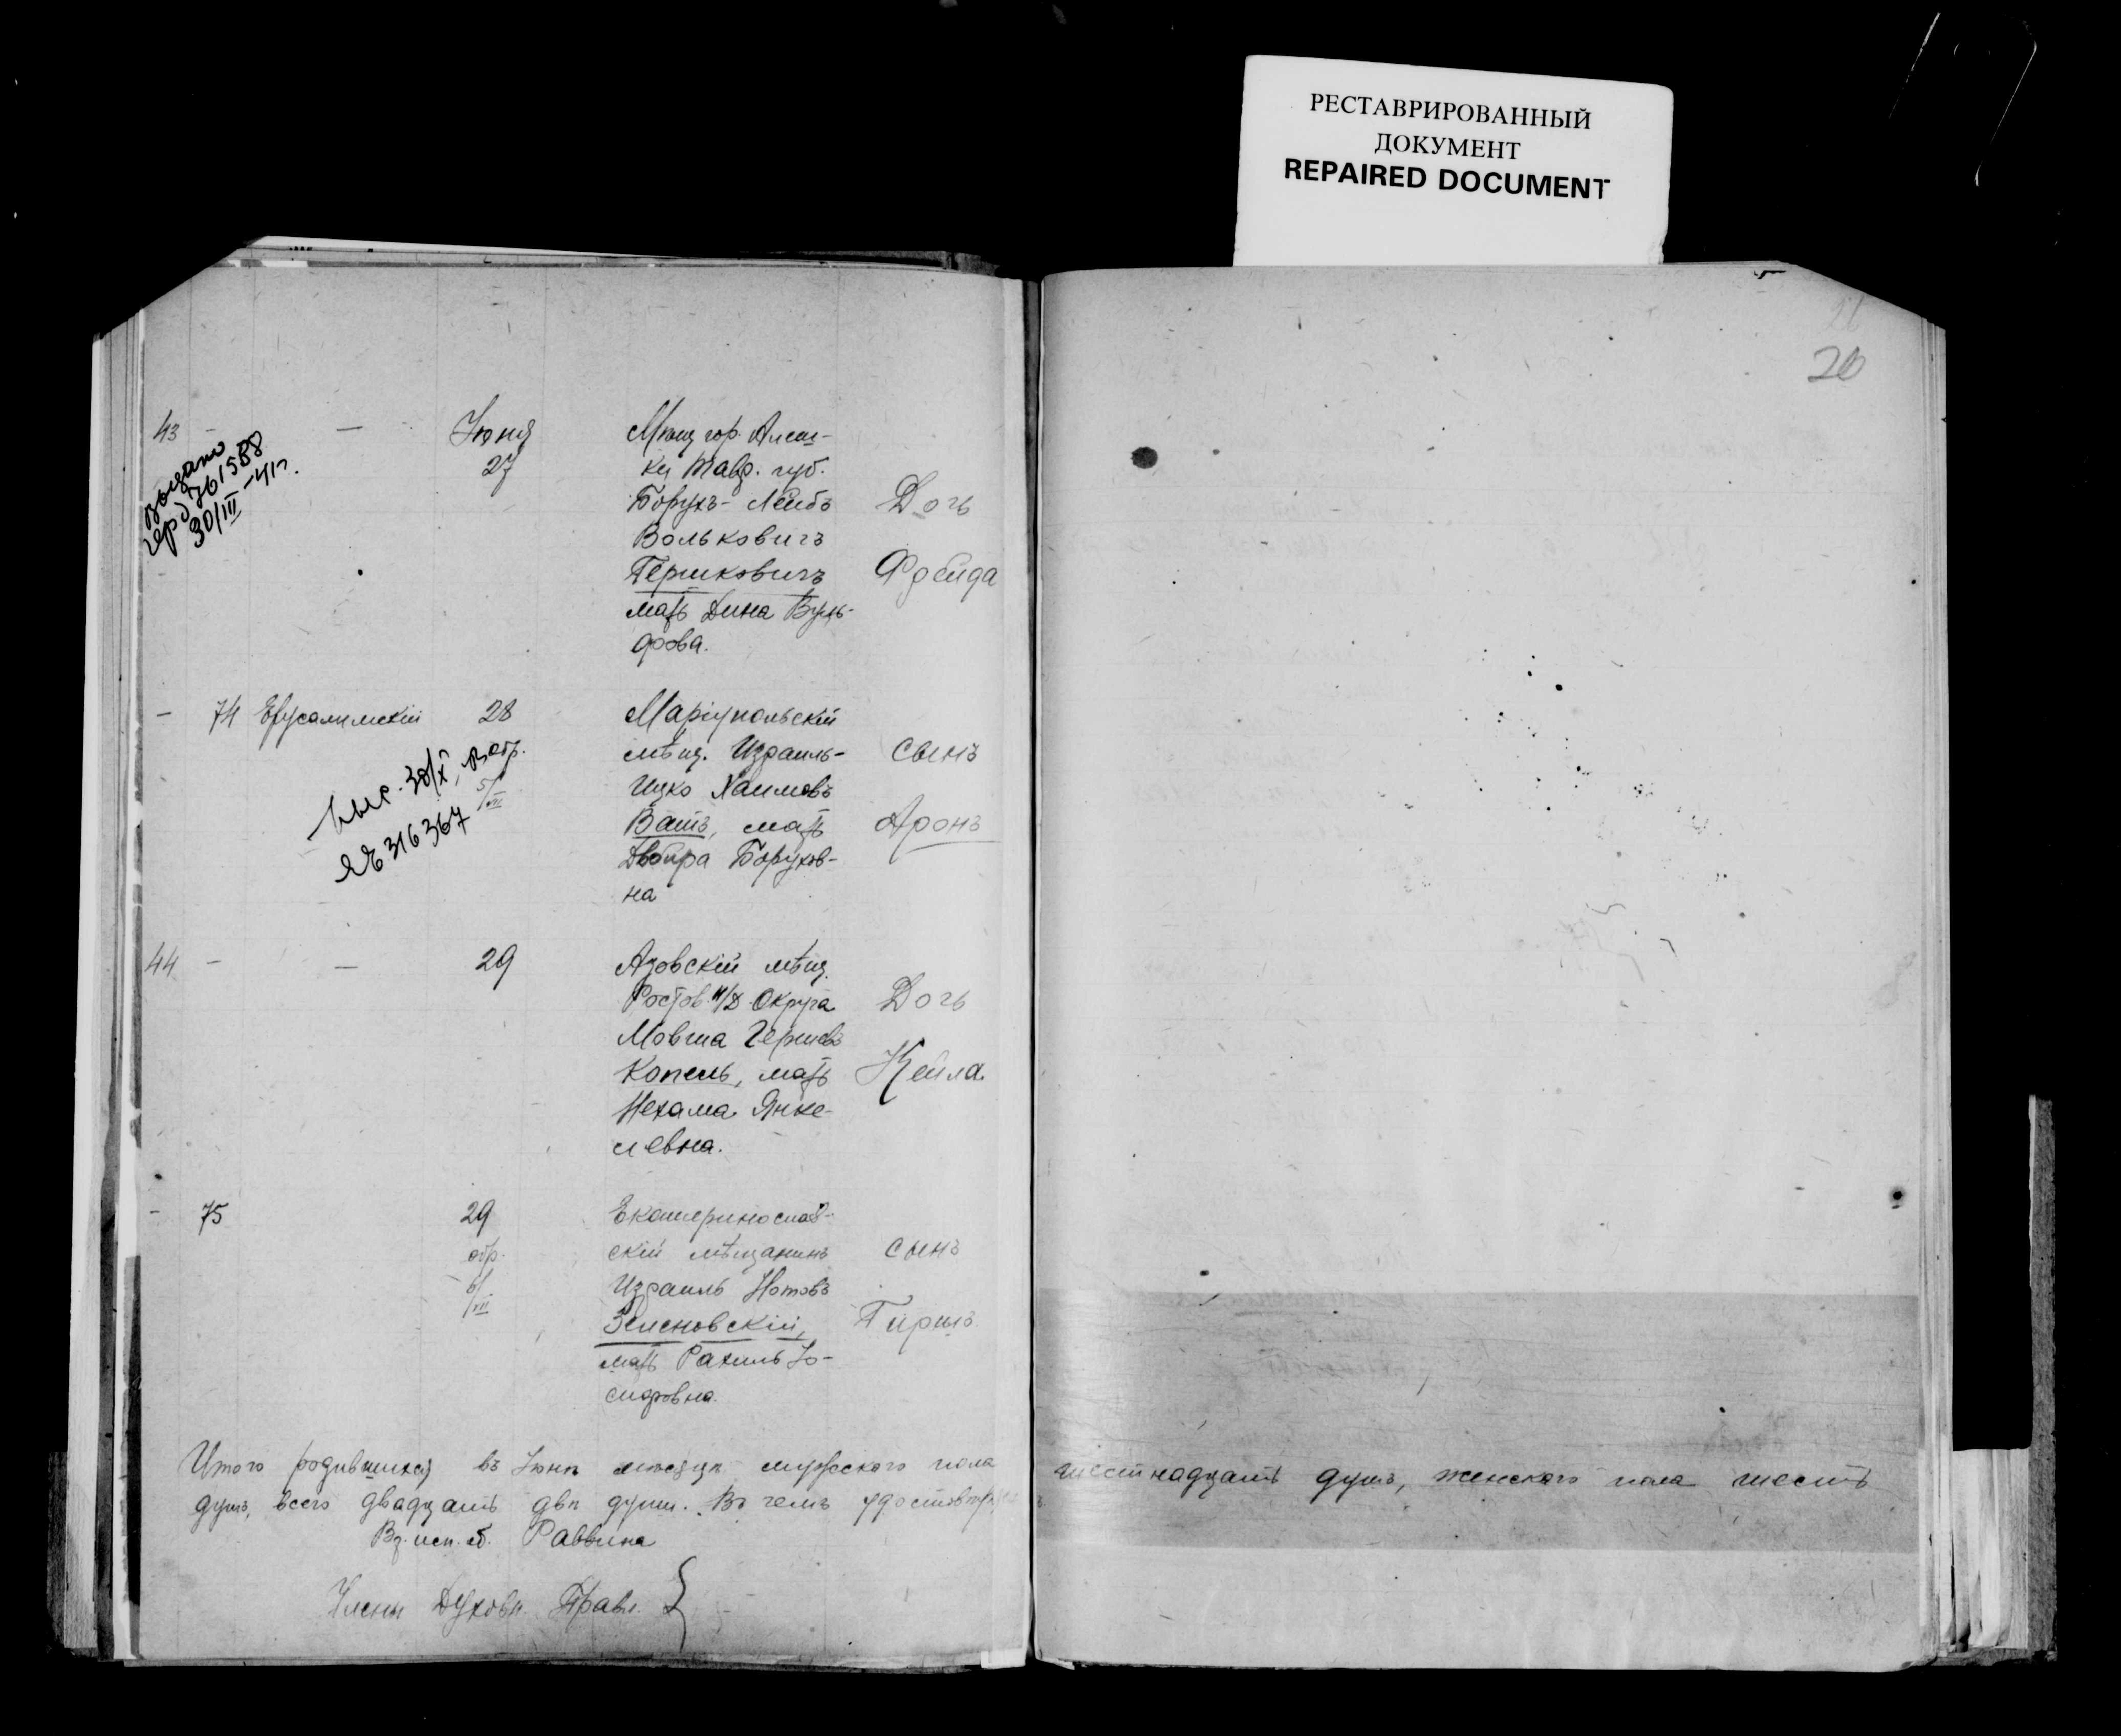 РЕСТАВРИРОВАННЫЙ
ДОКУМЕНТ
REPAIRED DOCUMENT
20
43 - — Июня
27
Мѣщ гор. Алеш-
ки Тавр. губ.
Борухъ-Лейбъ
Вольковичъ
Гершковичъ
мать Дина Вуль-
фова.
Дочь
Фрейда
выдано
30/III-41г.
- 74 Ерусалимскій 28
обр.
5/VII
Маріупольскій
мѣщ. Израиль-
Ицко Хаимовъ
Ватъ, мать
Двойра Борухов-
на
сынъ
Аронъ
ЯЕ 316367
44 - — 29
Азовскій мѣщ.
Ростов н/Д Округа
Мовша Гершовъ
Копель, мать
Нехама Янке-
левна.
Дочь
Кейла
- 75 29
обр.
6/VII
Екатеринослав-
скій мѣщанинъ
Израиль Нотовъ
Зеленовскій,
мать Рахиль Іо-
сифовна.
сынъ
Гиршъ
Итого родившихся въ Іюнѣ мѣсяцѣ мужескаго пола шестнадцать душъ, женскаго пола шесть
душъ, всего двадцать двѣ души. Въ чемъ удостовѣр
Вр. исп. об. Раввина
Члены Духовн. Правл. {